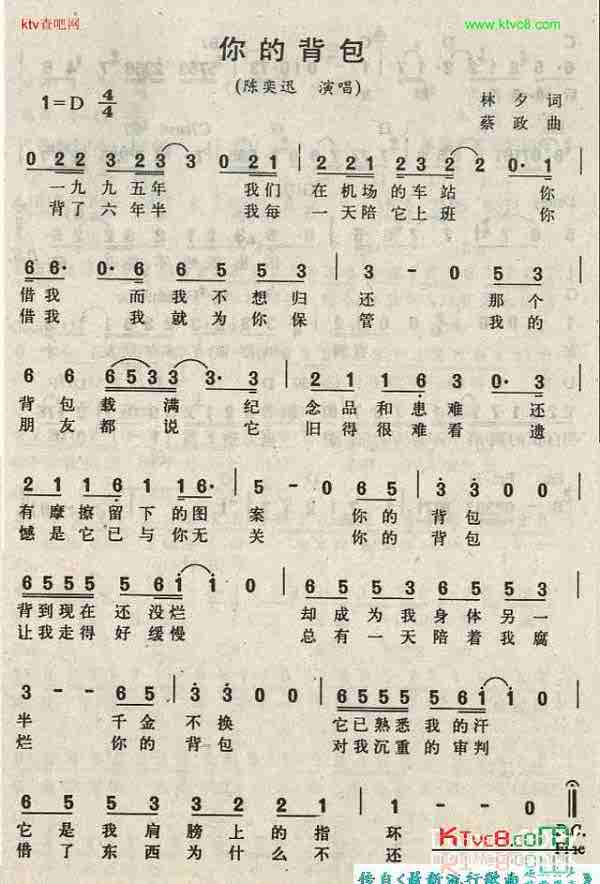 ktv查吧网
www.ktvc8.com
你的背包
(陈奕迅 演唱)
1=D 4/4
林夕 词
蔡政 曲
0 22 323 021 | 221 2232 2 0·1 |
一九九五年 我们 在机场的车站 你
背了六年半 我每 一天陪它上班 你
66· 0·6 65 53 | 3 - 0 53 |
借我 而我不想归 还 那个
借我 我就为你保 管 我的
6 6 6533 3·3 | 2116 3 0·3 |
背包载满 纪 念品和患难 还
朋友都说 它 旧得很难看 遗
2116 1 16· | 5 - 0 65 | 3 3 0 0 |
有摩擦留下的图 案 你的 背包
憾是它已与你无 关 你的 背包
6555 56i i 0 | 3553 65 53 |
背到现在还没烂 却成为我身体另一
让我走得好缓慢 总有一天陪着我腐
3 - - 65 | 3 3 0 0 | 6555 56i i 0 |
半 千金 不换 它已熟悉我的汗
烂 你的 背包 对我沉重的审判
6553 2321 | 1 - 0 0
它是我肩膀上的指 环
借了东西为什么不 还
D.C.
Fine
KTvc8.com